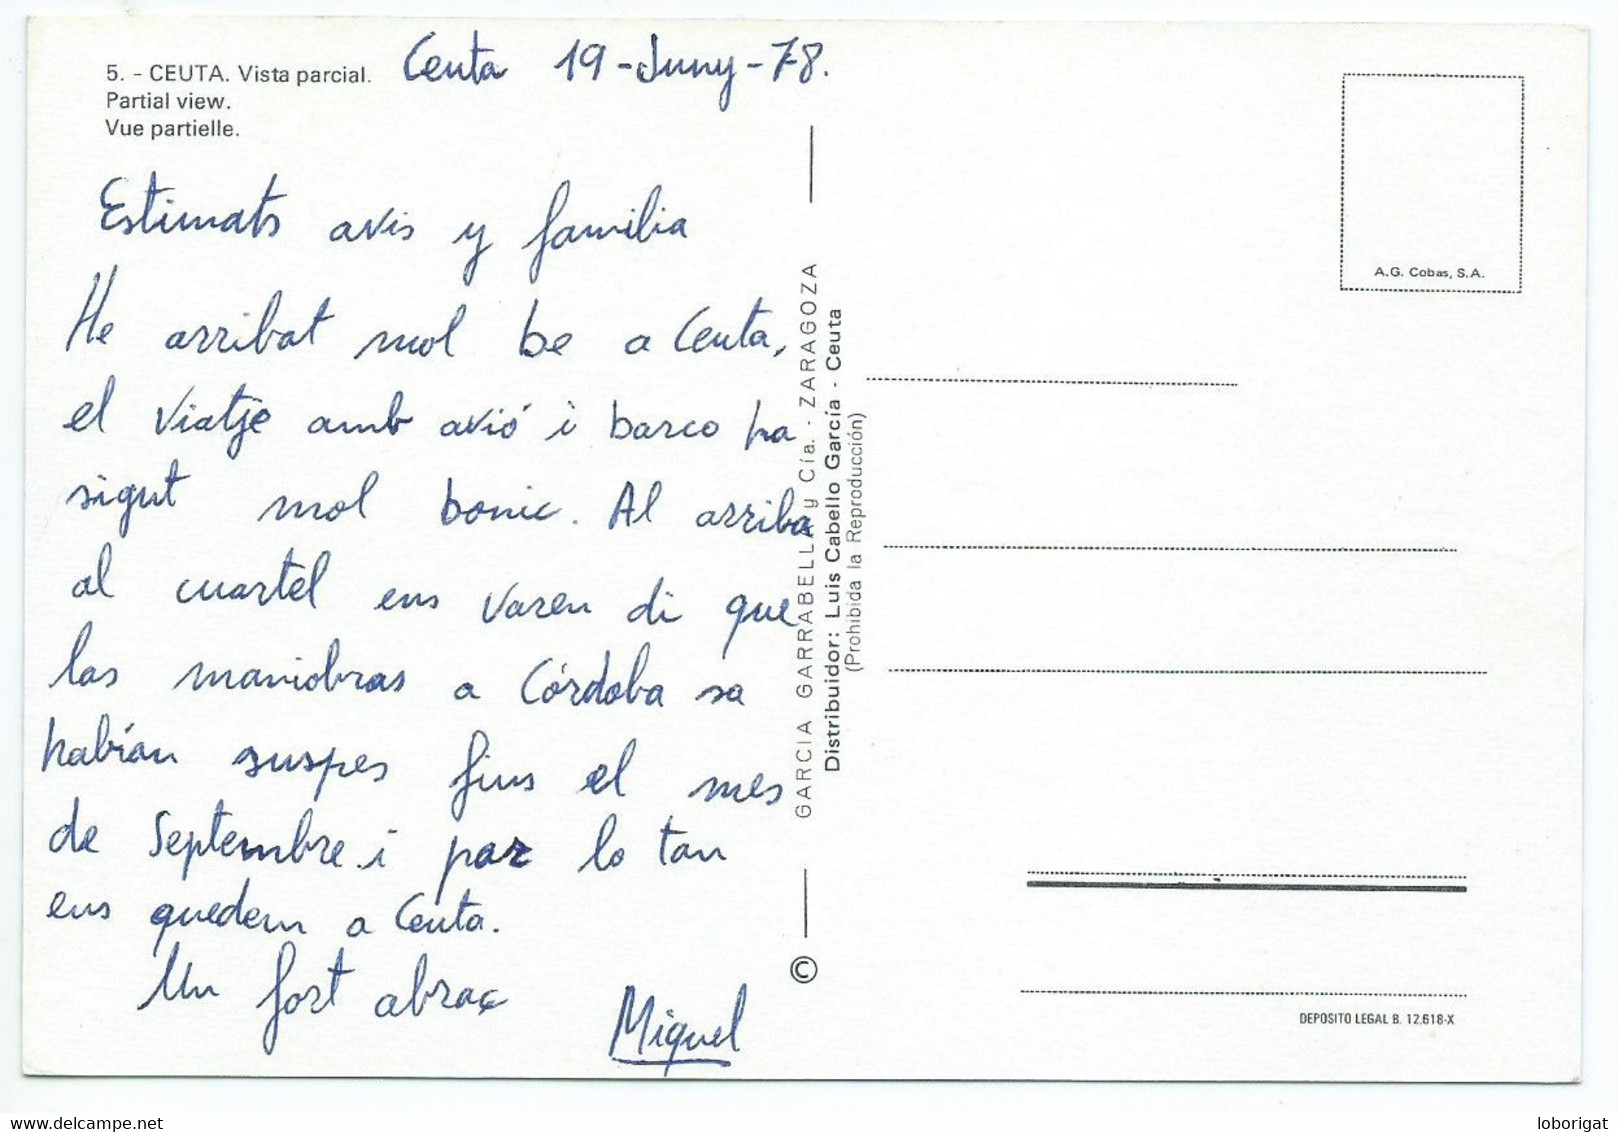 5. - CEUTA. Vista parcial.
Partial view.
Vue partielle.
Ceuta 19-Juny-78.
Estimats avis y familia
He arribat mol be a Ceuta,
el viatje amb avió i barco ha
sigut mol bonic. Al arriba
al cuartel ens varen di que
las maniobras a Córdoba sa
habían suspes fins el mes
de Septembre i par lo tan
ens quedem a Ceuta.
Un fort abraç
Miquel
GARCIA GARRABELLA y Cía. - ZARAGOZA
Distribuidor: Luis Cabello García - Ceuta
(Prohibida la Reproducción)
©
A.G. Cobas, S.A.
DEPOSITO LEGAL B. 12.618-X
loborigat